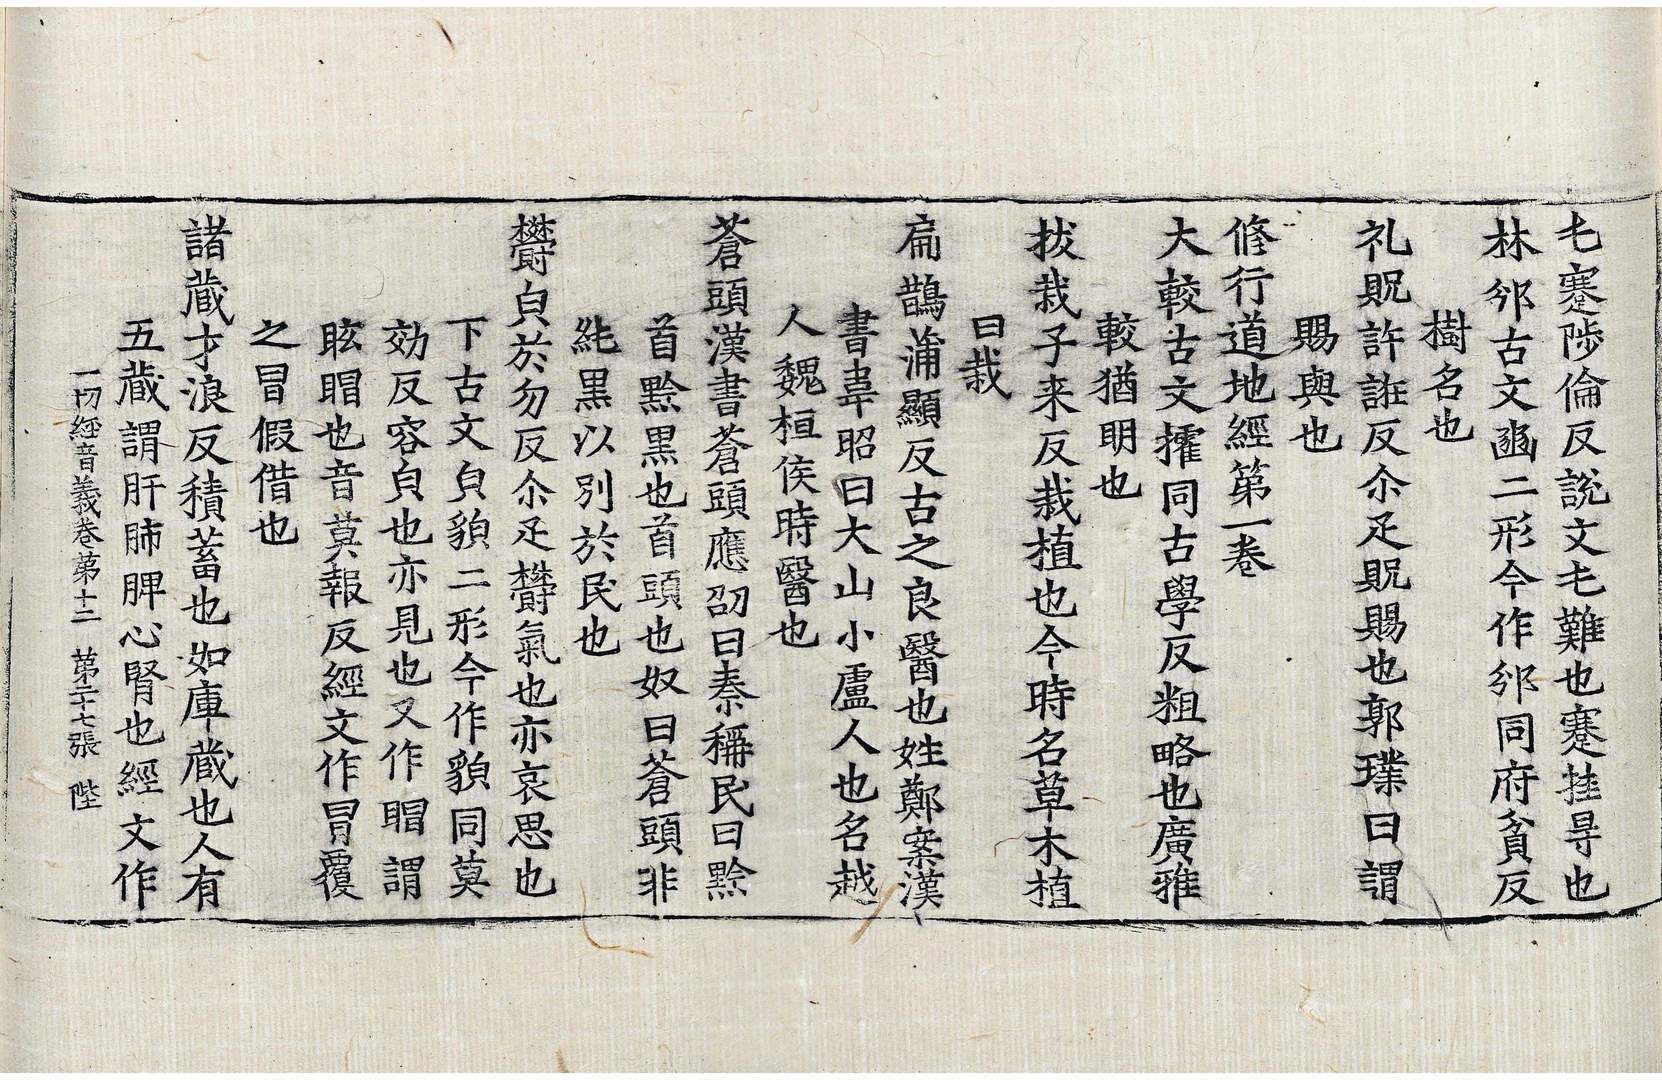 乇蹇陟倫反說文乇難也蹇挂㝵也
林邠古文豳二形今作邠同府貧反
樹名也
礼貺許誑反尒疋貺賜也郭璞曰謂
賜與也
修行道地經第一卷
大較古文㩁同古學反粗略也廣雅
較猶明也
拔栽子来反栽植也今時名草木植
曰栽
扁鵲蒲顯反古之良醫也姓鄭案漢
書韋昭曰大山小盧人也名越
人魏桓侯時醫也
蒼頭漢書蒼頭應劭曰秦稱民曰黔
首黔黑也首頭也奴曰蒼頭非
純黑以別於民也
欝皃於勿反尒疋欝氣也亦哀思也
下古文皃䫉二形今作貌同莫
効反容皃也亦見也又作䀤謂
眩䀤也音莫報反經文作冒覆
之冒假借也
諸藏才浪反積蓄也如庫藏也人有
五藏謂肝肺脾心腎也經文作
一切經音義卷第十二 第二十七張 陛